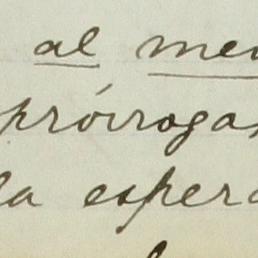 al me
prórrogas
la espera